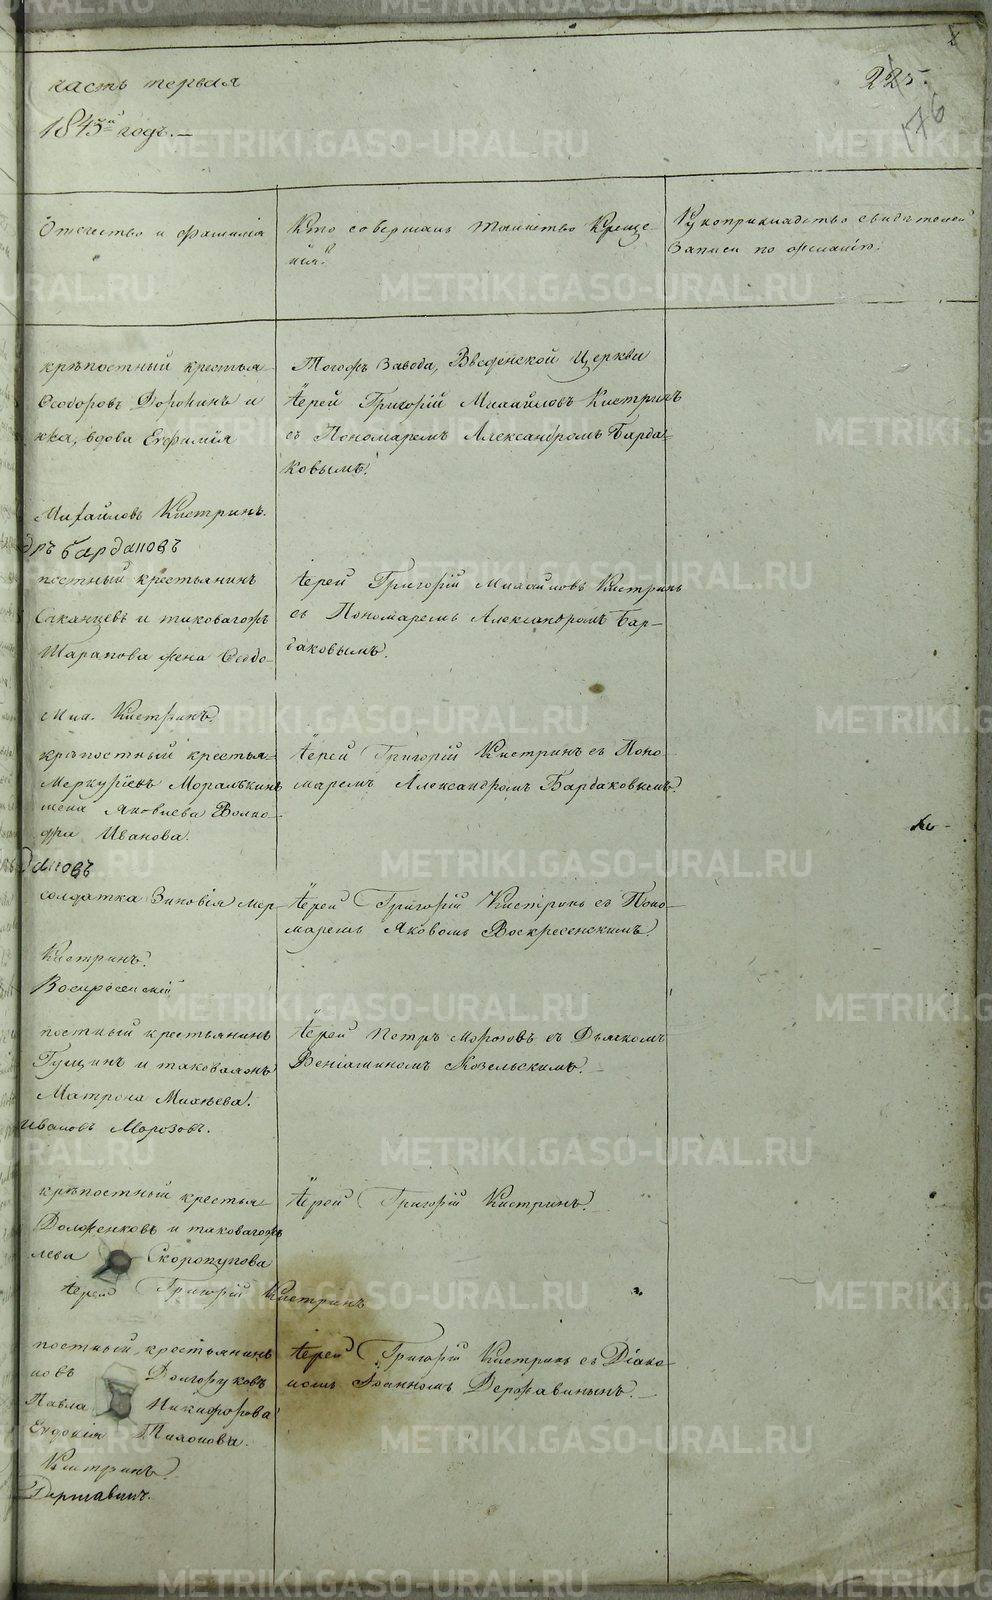 часть первая
1843й годъ. —
225.
176
Отчество и фамилія
Кто совершалъ таинство Креще
нія.
Рукоприкладство свидѣтелей
Записи по желанію.
крѣпостный крестья
Ѳеодоровъ Доронинъ и
вдова Евфимія
Тогожъ Завода, Введенской Церкви
Іерей Григорій Михайловъ Кистринъ
съ Пономаремъ Александромъ Барда-
ковымъ.
Михайловъ Кистринъ.
дръ бардаковъ
постный крестьянинъ
и таковагожъ
Шарапова жена Ѳедо-
Іерей Григорій Михайловъ Кистринъ
съ Пономаремъ Александромъ Бар-
даковымъ.
Мих. Кистринъ.
крѣпостный крестья-
Меркурьевъ Моралькинъ
Яковлева Волко-
дра Иванова.
Іерей Григорій Кистринъ съ Поно-
маремъ Александромъ Бардаковымъ.
даковъ
солдатка Зиновія Мер-
Іерей Григорій Кистринъ съ Поно-
маремъ Яковомъ Воскресенскимъ.
Кистринъ.
Воскресенскій
постный крестьянинъ
Гущинъ и таковагожъ
Матрона Михѣева.
Іерей Петръ Морозовъ съ Дьячкомъ
Веніаминомъ Козельскимъ. —
Ивановъ Морозовъ.
крѣпостный крестья
Долженковъ и таковагожъ
лева Скоропупова
Іерей Григорій Кистринъ.
Іерей Григорій Кистринъ
постный крестьянинъ
новъ Долгоруковъ
Павла Никифорова
Евдокія Тихонова.
Іерей Григорій Кистринъ съ Діако-
номъ Іоанномъ Державинымъ. —
Кистринъ.
Державинъ.
METRIKI.GASO-URAL.RU